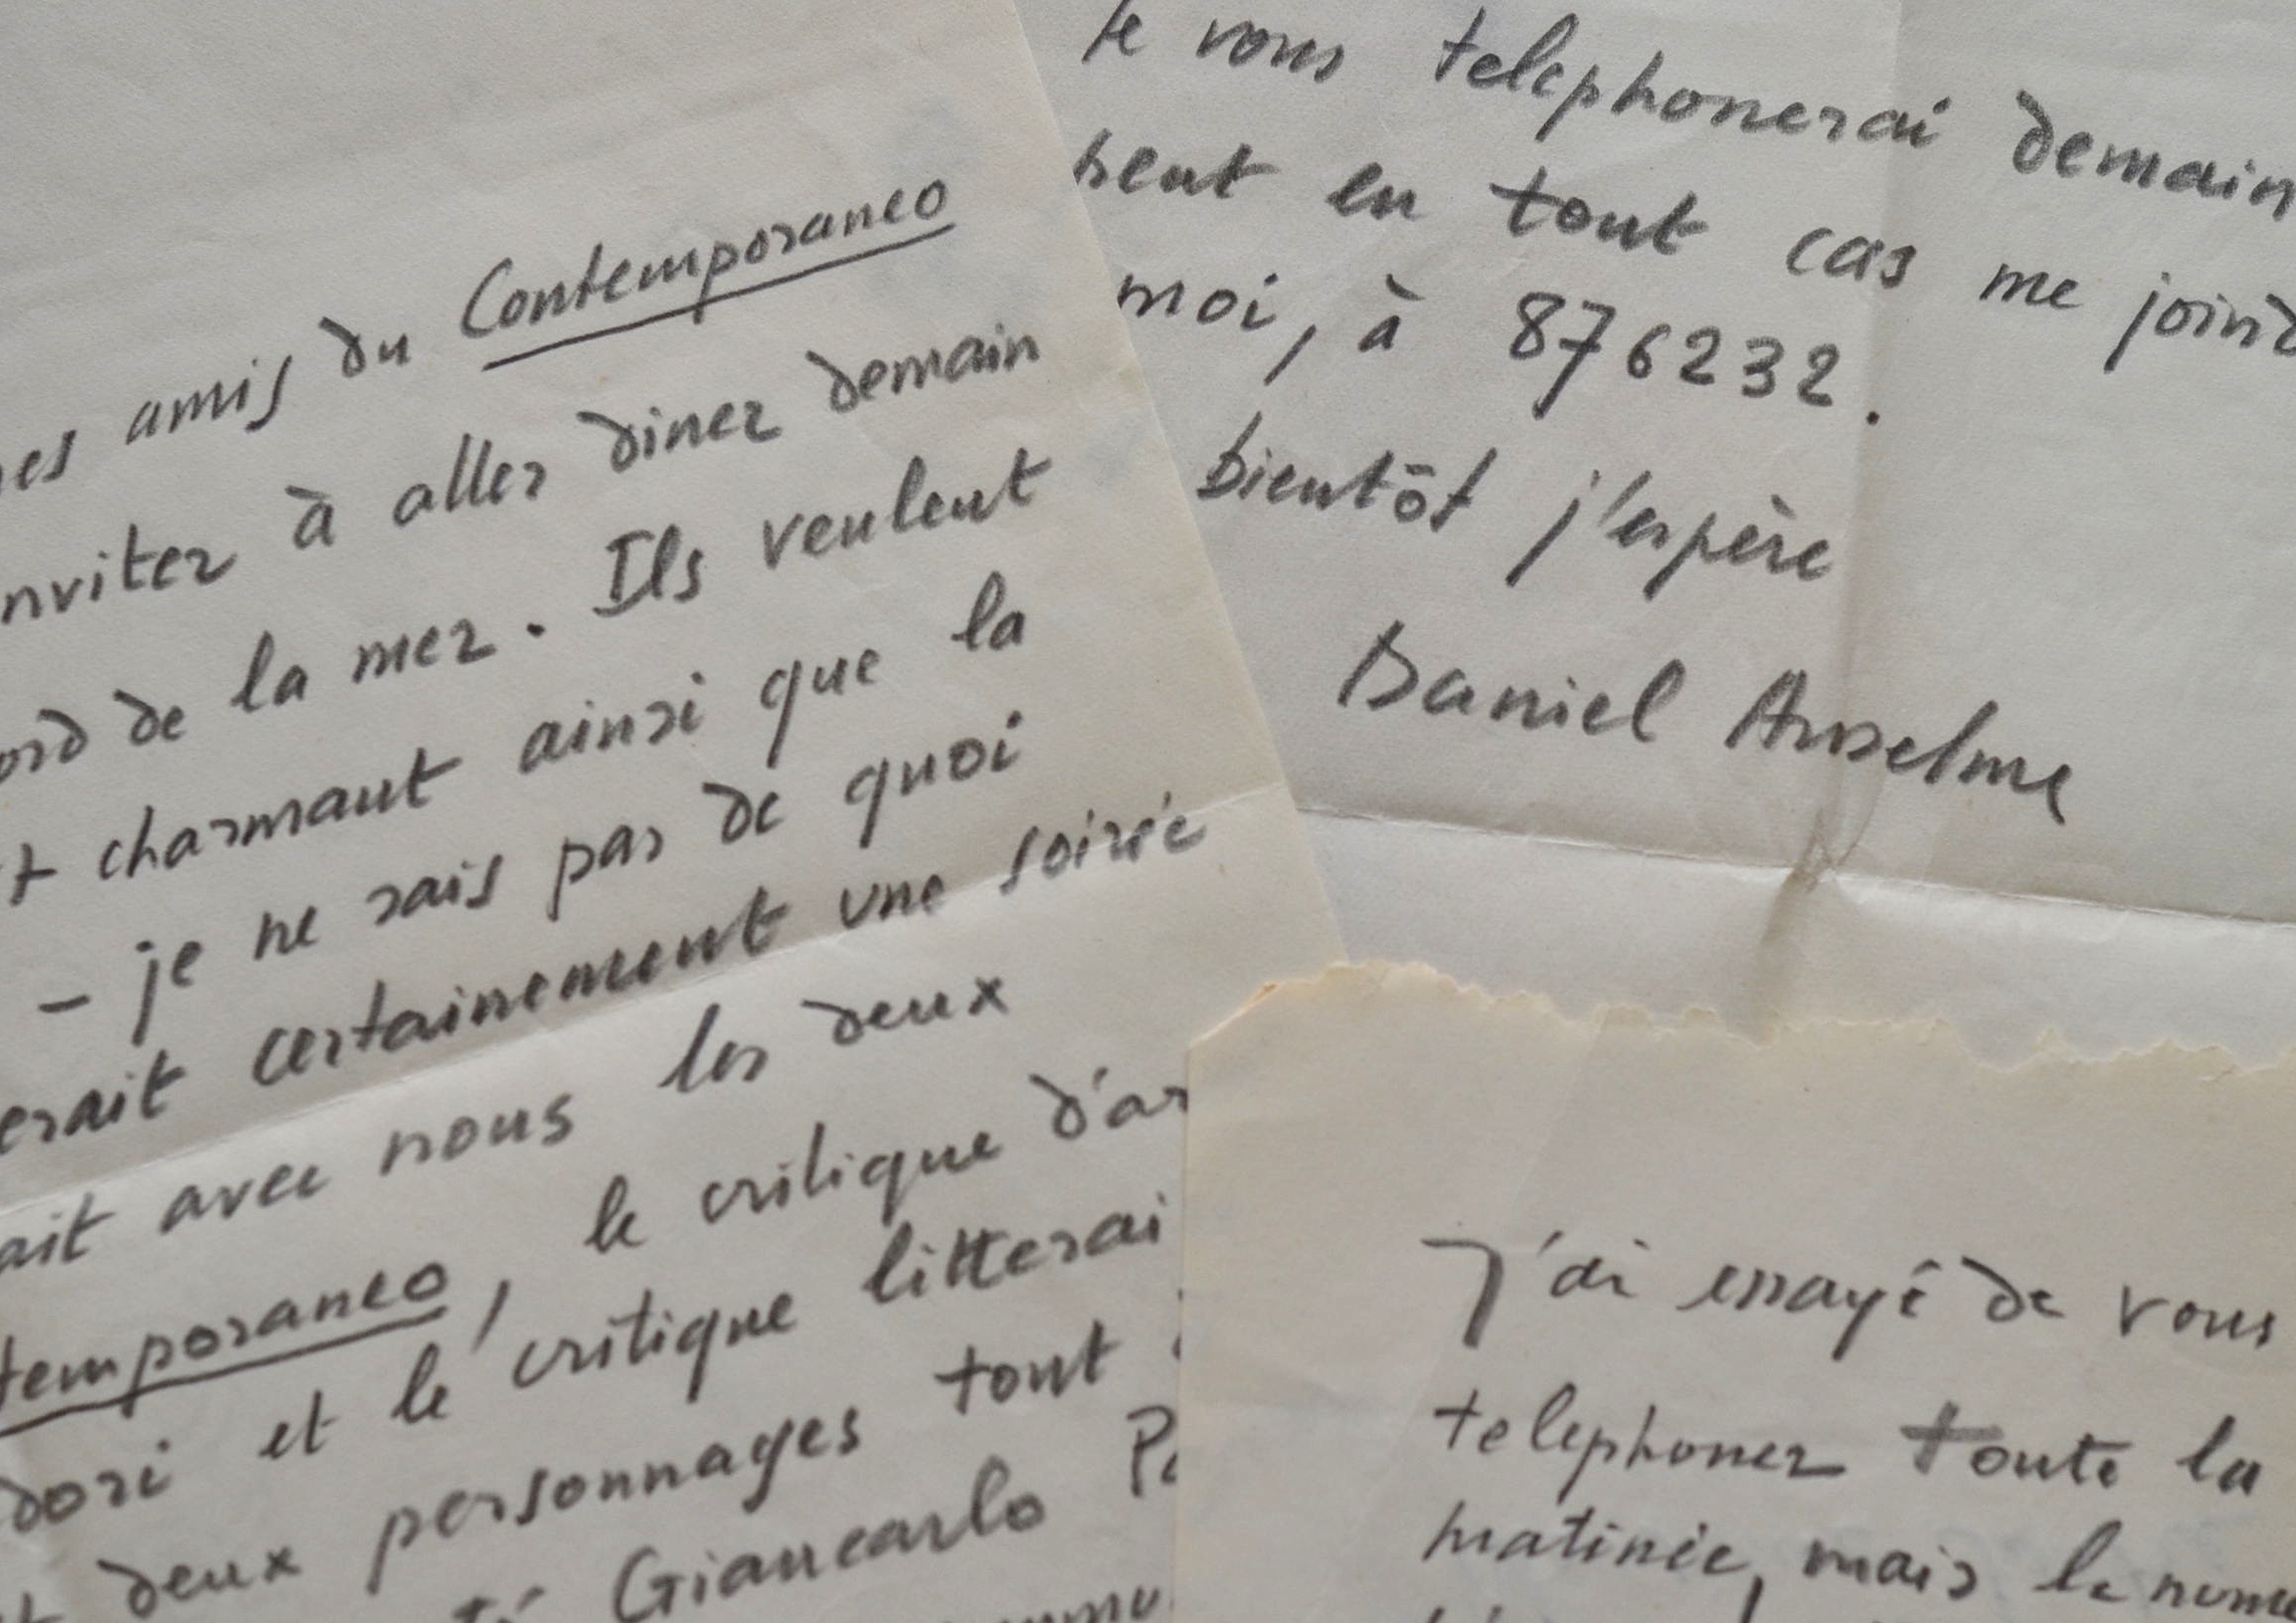 amis du Contemporaneo
nviter à aller diner demain
ord de la mer. Ils veulent
t charmant ainsi que la
– je ne sais pas de quoi
erait certainement une soirée
ait avec nous les deux
temporaneo, le critique d'ar
dori et le critique litterai
deux personnages tout
té Giancarlo
Je vous telephonerai demain
peut en tout cas me joind
moi, à 876232.
bientôt j'espère
Daniel Anselme
J'ai essayé de vous
telephoner toute la
matinée, mais le nume